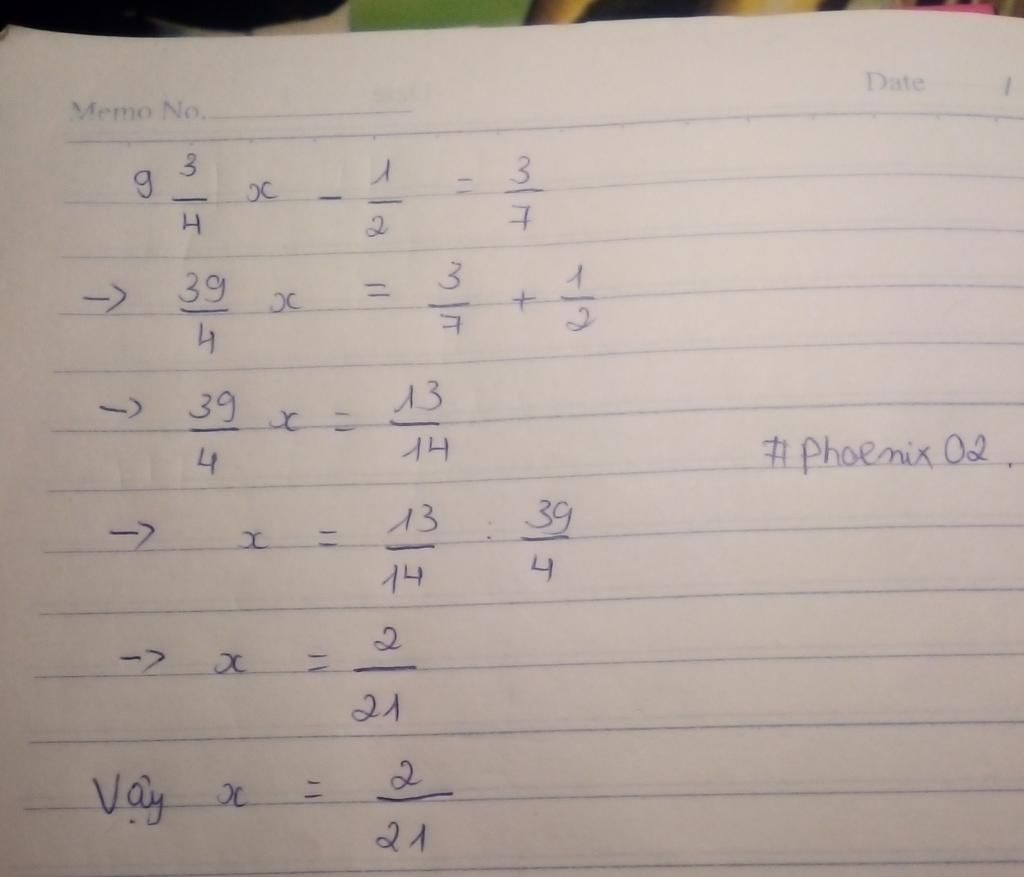 Date
Memo No.
9 3/4 x - 1/2 = 3/7
-> 39/4 x = 3/7 + 1/2
-> 39/4 x = 13/14
#Phoenix02.
-> x = 13/14 : 39/4
-> x = 2/21
Vậy x = 2/21